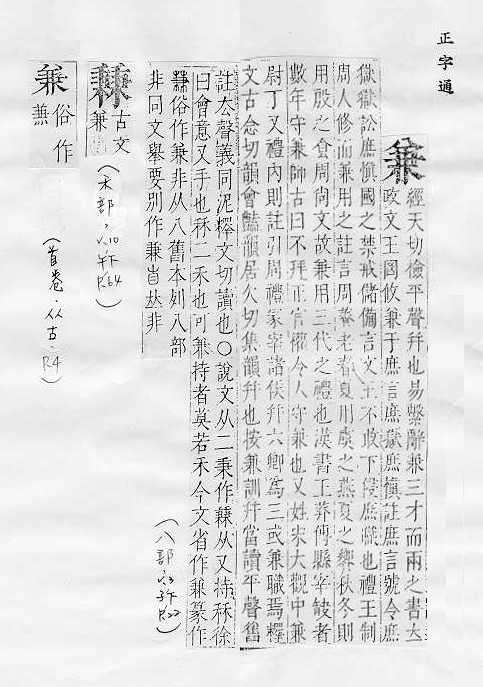 正字通
兼
經天切儉平聲幷也易繫辭兼三才而兩之書大
政文王罔攸兼于庶言庶獄庶愼註庶言號令庶
獄獄訟庶愼國之禁戒儲備言文王不敢下侵庶職也禮王制
周人修而兼用之註言周養老春夏用虞之燕夏之饗秋冬則
用殷之食周尚文故兼用三代之禮也漢書王莽傳縣宰缺者
數年守兼師古曰不拜正官權令人守兼也又姓宋大觀中兼
尉丁又禮內則註引周禮冢宰諸侯幷六卿爲三或兼職焉釋
文古念切韻會豔韻居欠切集韻幷也按兼訓幷當讀平聲舊
註厺聲義同泥釋文切讀也○說文从二秉作兼从又持秝徐
曰會意又手也秝二禾也可兼持者莫若禾今文省作兼篆作
俗作兼非从八舊本列八部
非同文舉要別作兼𠀤非
古文
兼
(禾部
俗作
兼
(首卷．从古．P.4)
(八部